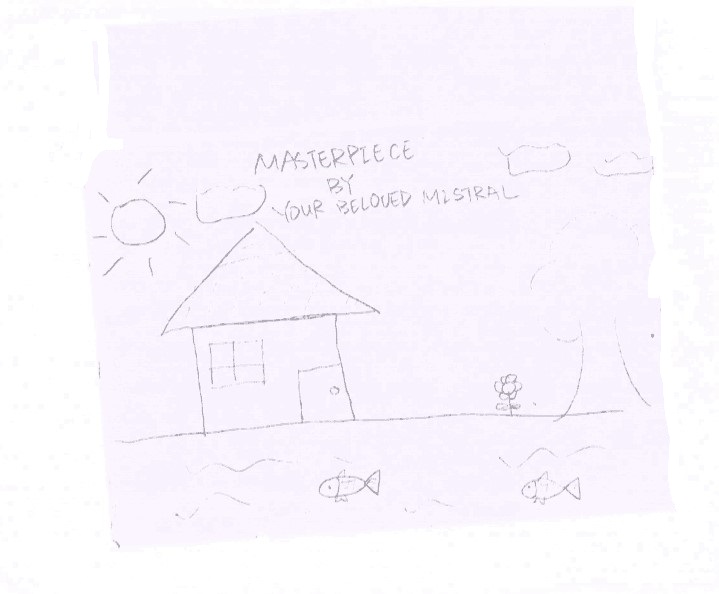 MASTERPIECE
BY
YOUR BELOVED MISTRAL